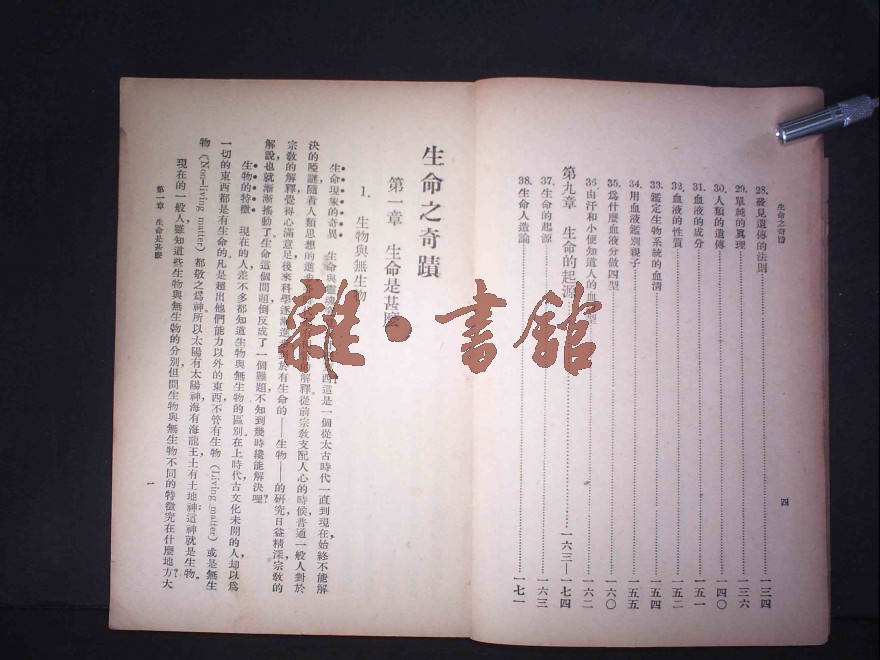 生命之奇蹟
四
28. 發見遺傳的法則 一三四
29. 單純的眞理 一三六
30. 人類的遺傳 一四〇
31. 血液的成分 一五一
32. 血液的性質 一五二
33. 鑑定生物系統的血清 一五四
34. 用血液鑑別親子 一五五
35. 爲什麼血液分做四型 一六〇
36. 由汗和小便知道人的血型 一六二
第九章 生命的起源 一六三—一七四
37. 生命的起源 一六三
38. 生命人造論 一七一
生命之奇蹟
第一章 生命是甚麼
1. 生物與無生物
生命現象的奇異 生命與靈魂 西這是一個從太古時代一直到現在始終不能解
決的啞謎隨着人類思想的進步 的解釋從前宗敎支配人心的時候普通一般人對於
宗敎的解釋覺得心滿意足後來科學逐漸進 於有生命的——生物——的硏究日益精深宗敎的
解說也就漸漸搖動了生命這個問題倒反成了一個難題不知到幾時纔能解決哩？
生物的特徵 現在的人差不多都知道生物與無生物的區別在上時代古文化未開的人却以爲
一切的東西都是有生命的凡是超出他們能力以外的東西不管有生物 (Living matter) 或是無生
物 (Non-living matter) 都敬之爲神所以太陽有太陽神，海有海龍王土有土地神；這神就是生物。
現在的一般人，雖知道些生物與無生物的分別，但問生物與無生物不同的特徵究在什麼地方？大
第一章 生命是甚麼
一
雜·書館